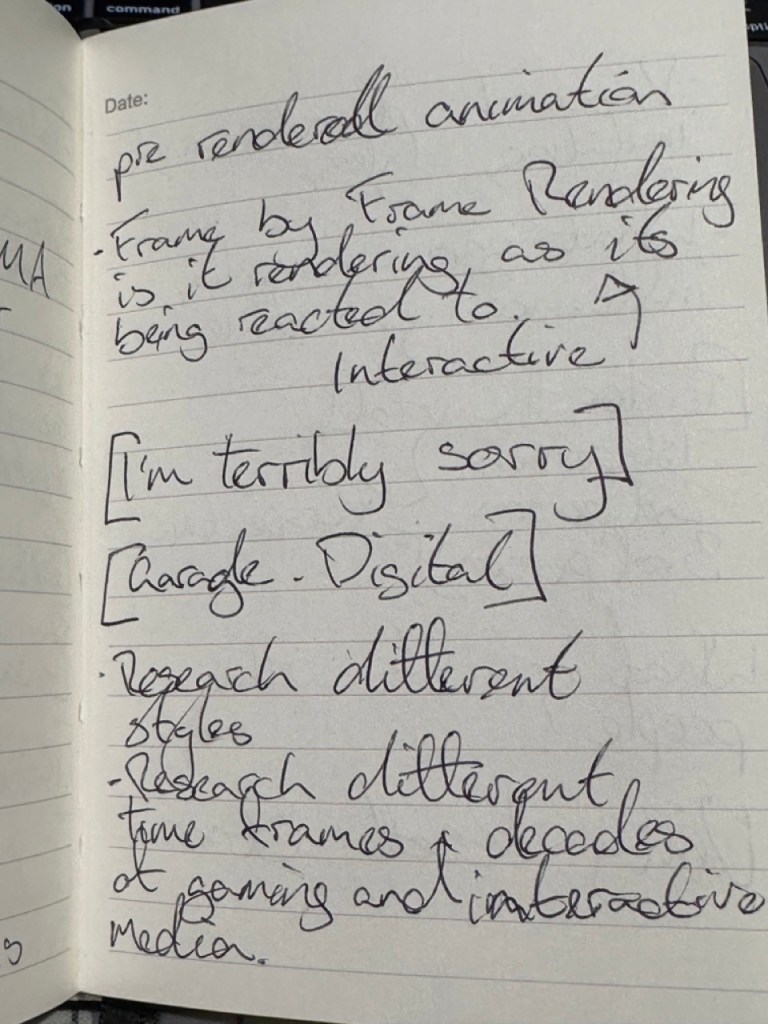 command
Date:
pre rendered animation
· Frame by Frame Rendering
is it rendering as its
being reacted to.
Interactive
[I'm terribly sorry]
[Garagle. Digital]
· Research different
styles
- Research different
time frames + decades
of gaming and interactive
Media.
MA